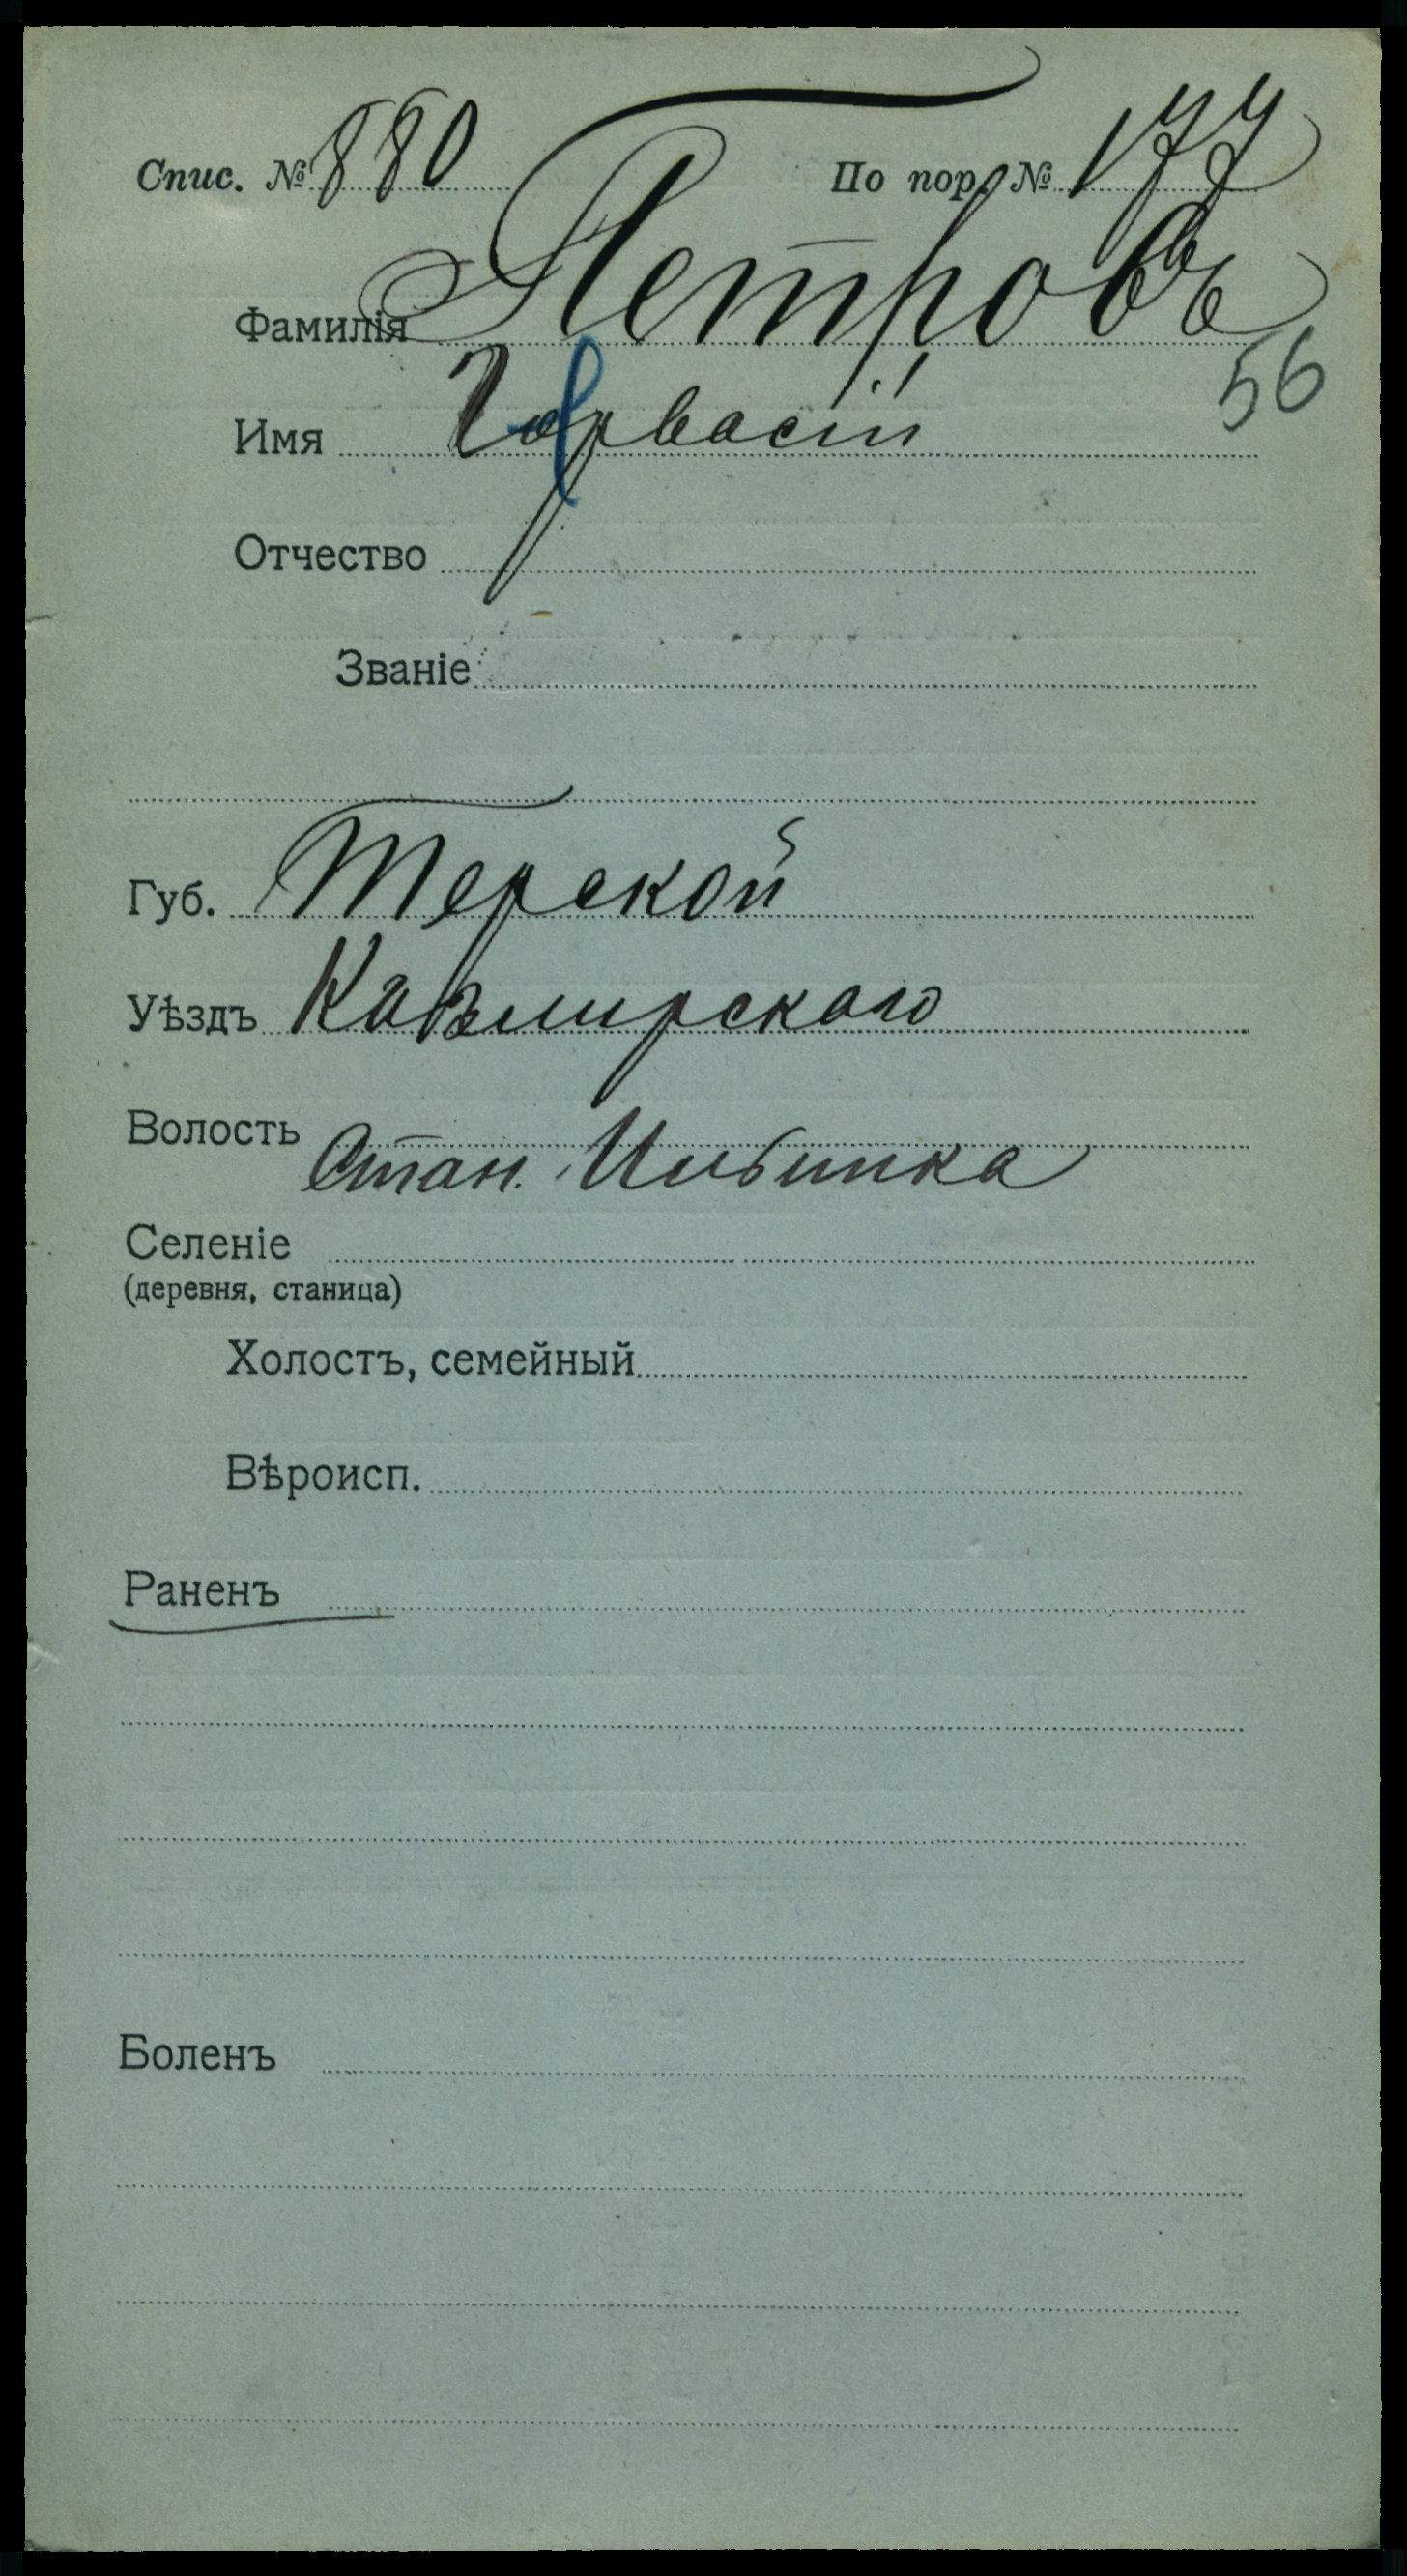 Спис. № 880 По пор. № 177
Фамилія Петровъ
56
Имя Горвасій
Отчество
Званіе
Губ. Терской
Уѣздъ Кизлирскаго
Волость
Стан.
Селеніе
(деревня, станица)
Холостъ, семейный
Вѣроисп.
Раненъ
Боленъ